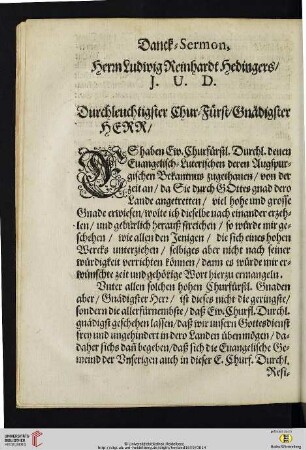 Danck-Sermon,
Herrn Ludwig Reinhardt Hedingers/
J. U. D.
Durchleuchtigster Chur-Fürst/Gnädigster
HERR/
ES haben Ew. Churfürstl. Durchl. denen
Euangelisch-Luterischen deren Augspur-
gischen Bekantnus zugethanen/ von der
zeit an/ da Sie durch GOttes gnad dero
Lande angetretten/ viel hohe und grosse
Gnade erwiesen/ wolte ich dieselbe nach einander erzeh-
len/ und gebürlich herauß streichen/ so würde mir ge-
schehen/ wie allen den Jenigen/ die sich eines hohen
Wercks unterziehen/ selbiges aber nicht nach seiner
würdigkeit verrichten können/ denn es würde mir er-
wünschte zeit und gehörige Wort hierzu ermangeln.
Unter allen solchen hohen Churfürstl. Gnaden
aber/ Gnädigster Herr/ ist dieses nicht die geringste/
sondern die allerfürnembste/ daß Ew. Churfl. Durchl.
gnädigst geschehen lassen/ daß wir unsern Gottesdienst
frey und ungehindert in dero Landen üben mögten/ da-
daher sichs dañ begeben/ daß sich die Euangelische Ge-
meind der Unserigen auch in dieser E. Churf. Durchl.
Resi-
UNIVERSITÄTS-
BIBLIOTHEK
HEIDELBERG
© Universitätsbibliothek Heidelberg
Baden-Württemberg